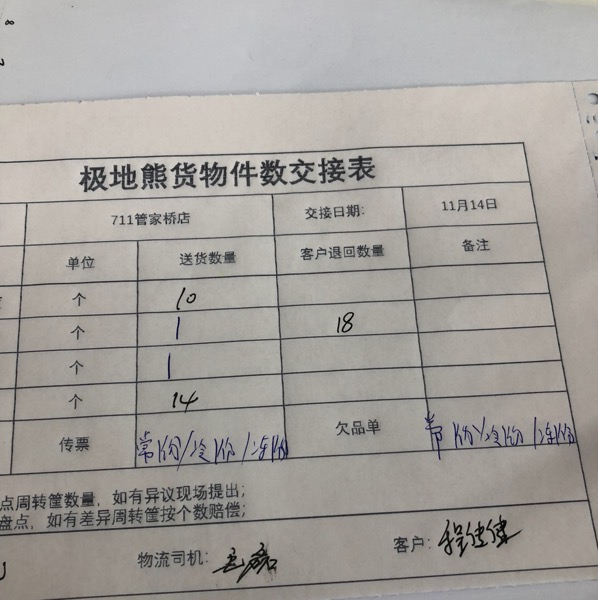 极地熊货物件数交接表
711管家桥店 交接日期: 11月14日
单位 送货数量 客户退回数量 备注
个 10
个 1 18
个 1
个 14
传票 常1份/冷1份/冻1份 欠品单 常1份/冷1份/冻1份
点周转筐数量，如有异议现场提出;
盘点，如有差异周转筐按个数赔偿;
物流司机: 客户: